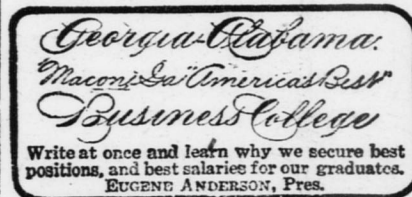 Georgia-Alabama
Macon, Ga "America's Best"
Business College
Write at once and learn why we secure best
positions, and best salaries for our graduates.
EUGENE ANDERSON, Pres.